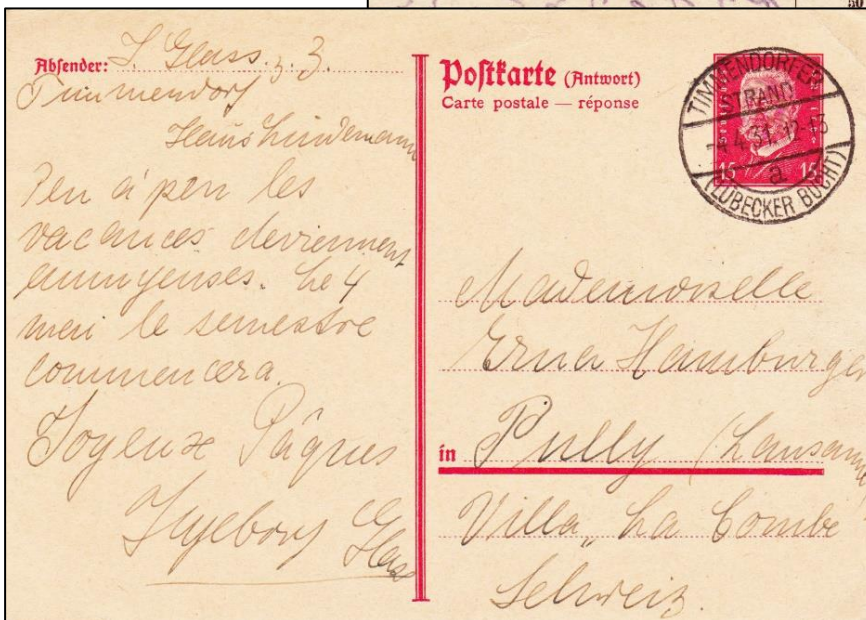 50
Absender: I. Glass z. Z.
Timmendorf
Haus Lindemann
Peu à peu les
vacances deviennent
ennuyenses. Le 4
mai le semestre
commencera.
Joyeuse Pâques
Ingeborg Glass
Postkarte (Antwort)
Carte postale — réponse
TIMMENDORFER
STRAND
-4.4.31.12-13
a
(LÜBECKER BUCHT)
15 15
Mademoiselle
Erna Hamburger
in Pully (Lausanne
Villa „La Combe
Schweiz.